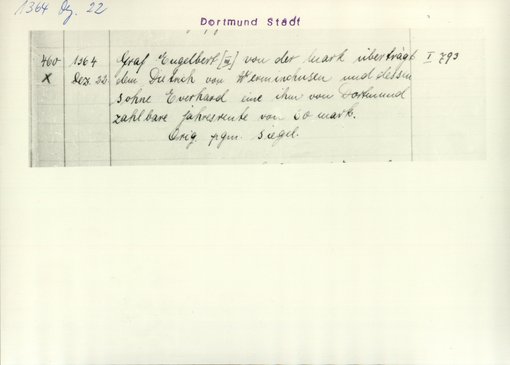 1364 Dz. 22
Dortmund Stadt
460 1364 Graf Engelbert [III] von der Mark überträgt I 793
X Dez. 22. dem Dietrich von Werminchusen und dessen
Sohne Everhard eine ihm von Dortmund
zahlbare Jahresrente von 60 Mark.
Orig. pgm. Siegel.